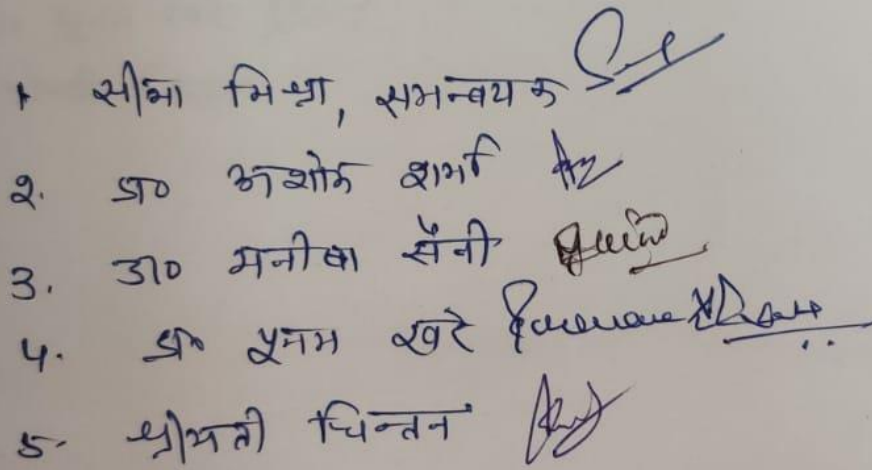 1 सीमा मिश्रा, समन्वयक
2. डा० अशोक शर्मा
3. डा० मनीषा सैनी
4. डा० पूनम खरे Poonam Khare
5. श्रीमती चिन्तन